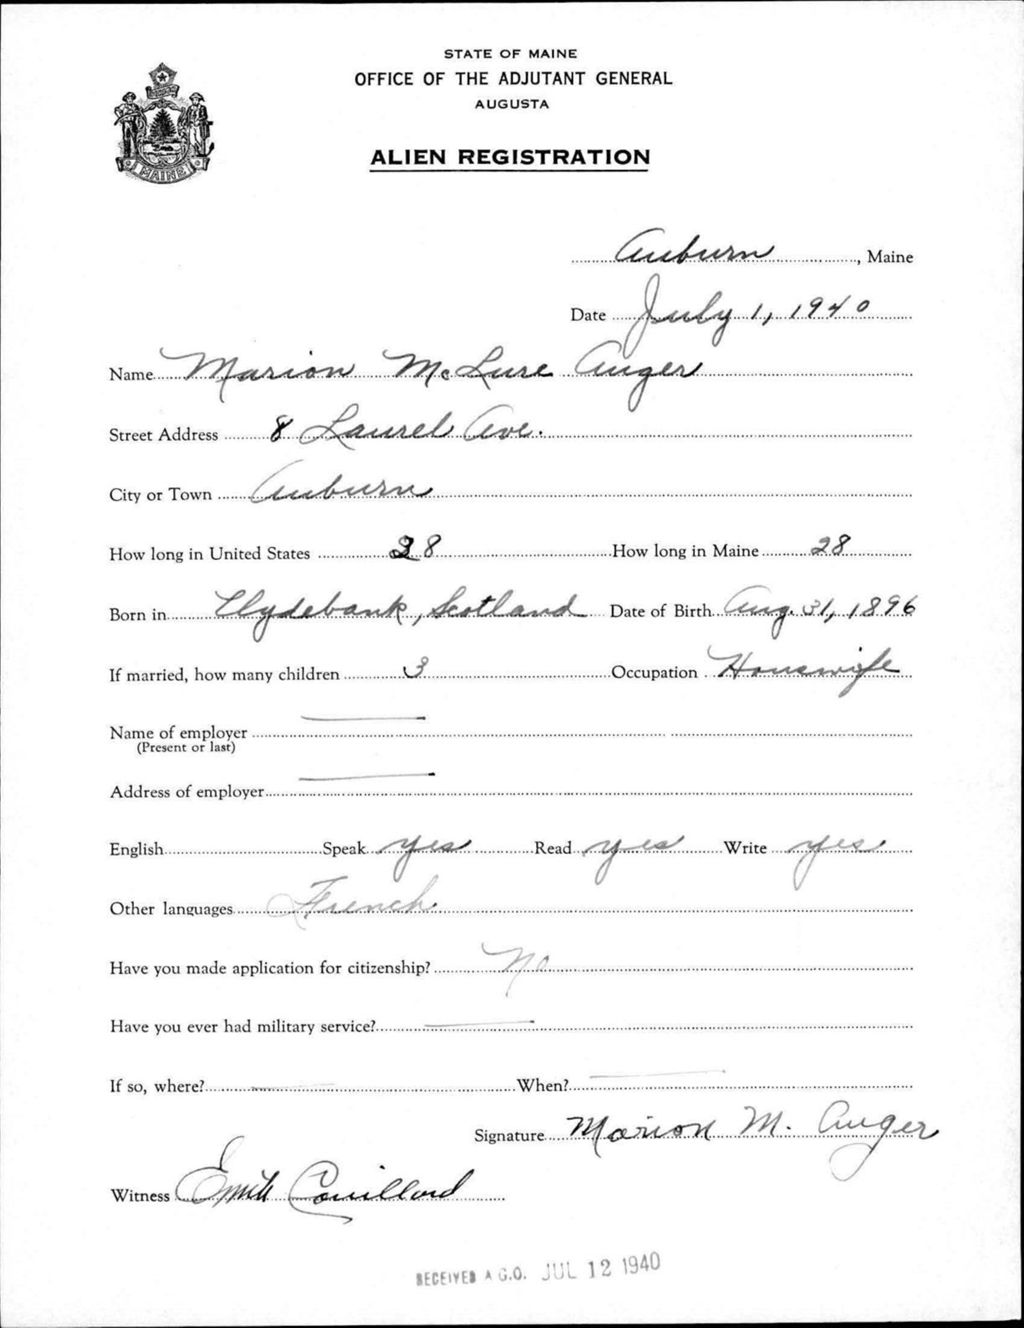 STATE OF MAINE
OFFICE OF THE ADJUTANT GENERAL
AUGUSTA
ALIEN REGISTRATION
MAINE
Auburn, Maine
Date July 1, 1940
Name Marion McLure Auger
Street Address 8 Laurel Ave.
City or Town Auburn
How long in United States 28 How long in Maine 28
Born in Clydebank, Scotland Date of Birth Aug. 31, 1896
If married, how many children 3 Occupation Houswife
Name of employer
(Present or last)
Address of employer
English Speak yes Read yes Write yes
Other languages French
Have you made application for citizenship? No
Have you ever had military service?
If so, where? When?
Signature Marion M. Auger
Witness Emile Couillard
RECEIVED A.G.O. JUL 12 1940